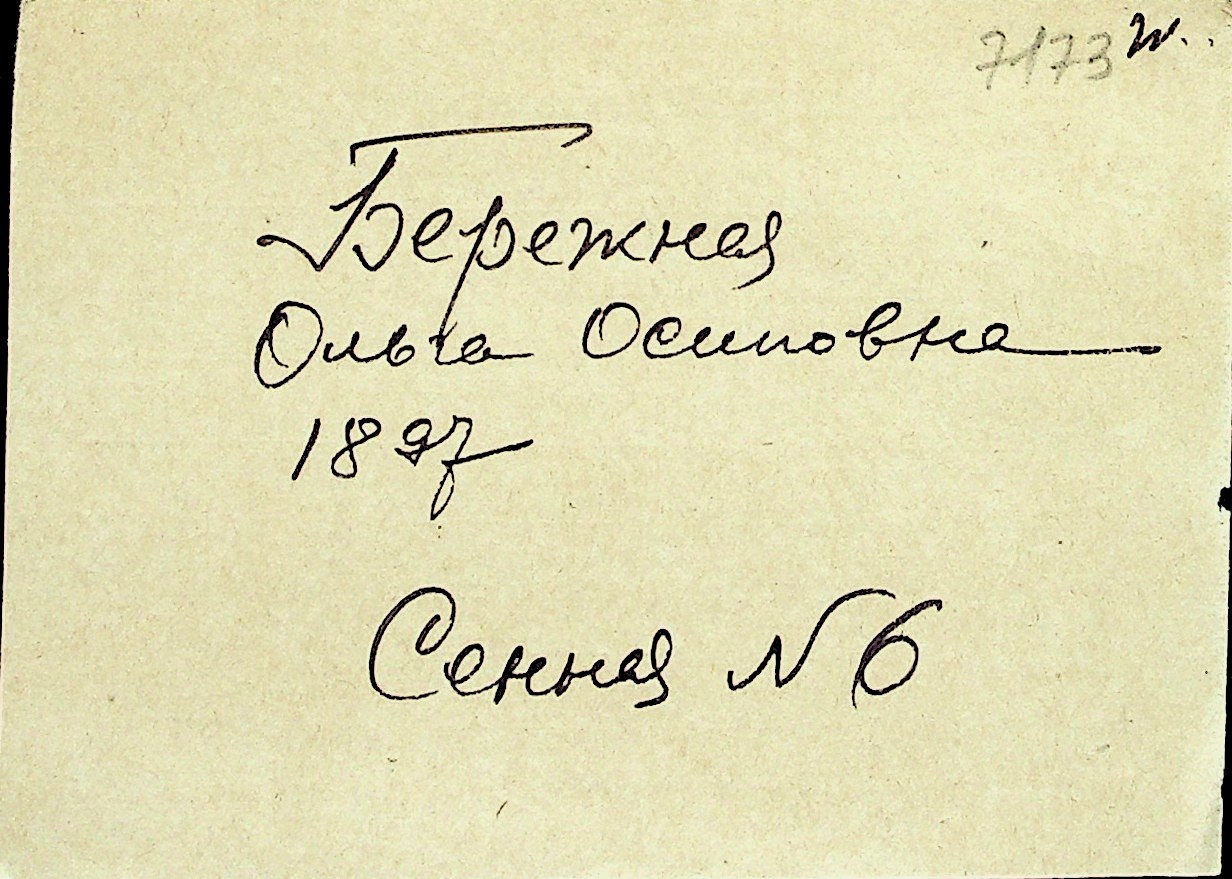 7173
Бережная
Ольга Осиповна
1897
Сенная N 6